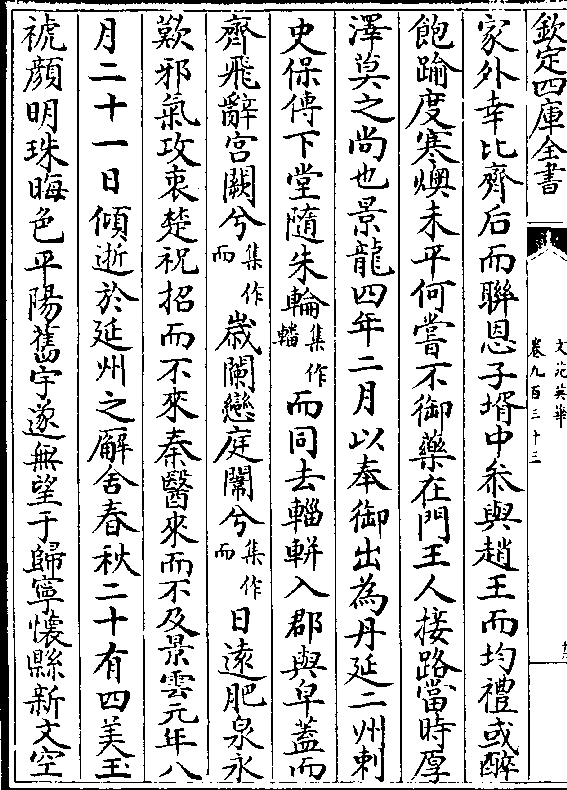 欽定四庫全書
文苑英華
卷九百三十三
家外幸比齊后而聯恩子壻中參與趙王而均禮或醉
飽踰度寒燠未平何嘗不御藥在門王人接路當時厚
澤莫之尚也景龍四年二月以奉御出為丹延二州刺
史保傅下堂隨朱輪集作轓而同去輜軿入郡與皁蓋而
齊飛辭宮闕兮集作而歲闌戀庭闈兮集作而日遠肥泉永
歎邪氣攻衷楚祝招而不來秦醫來而不及景雲元年八
月二十一日傾逝於延州之廨舍春秋二十有四美玉
褫顔明珠晦色平陽舊宇遂無望于歸寧懷縣新文空